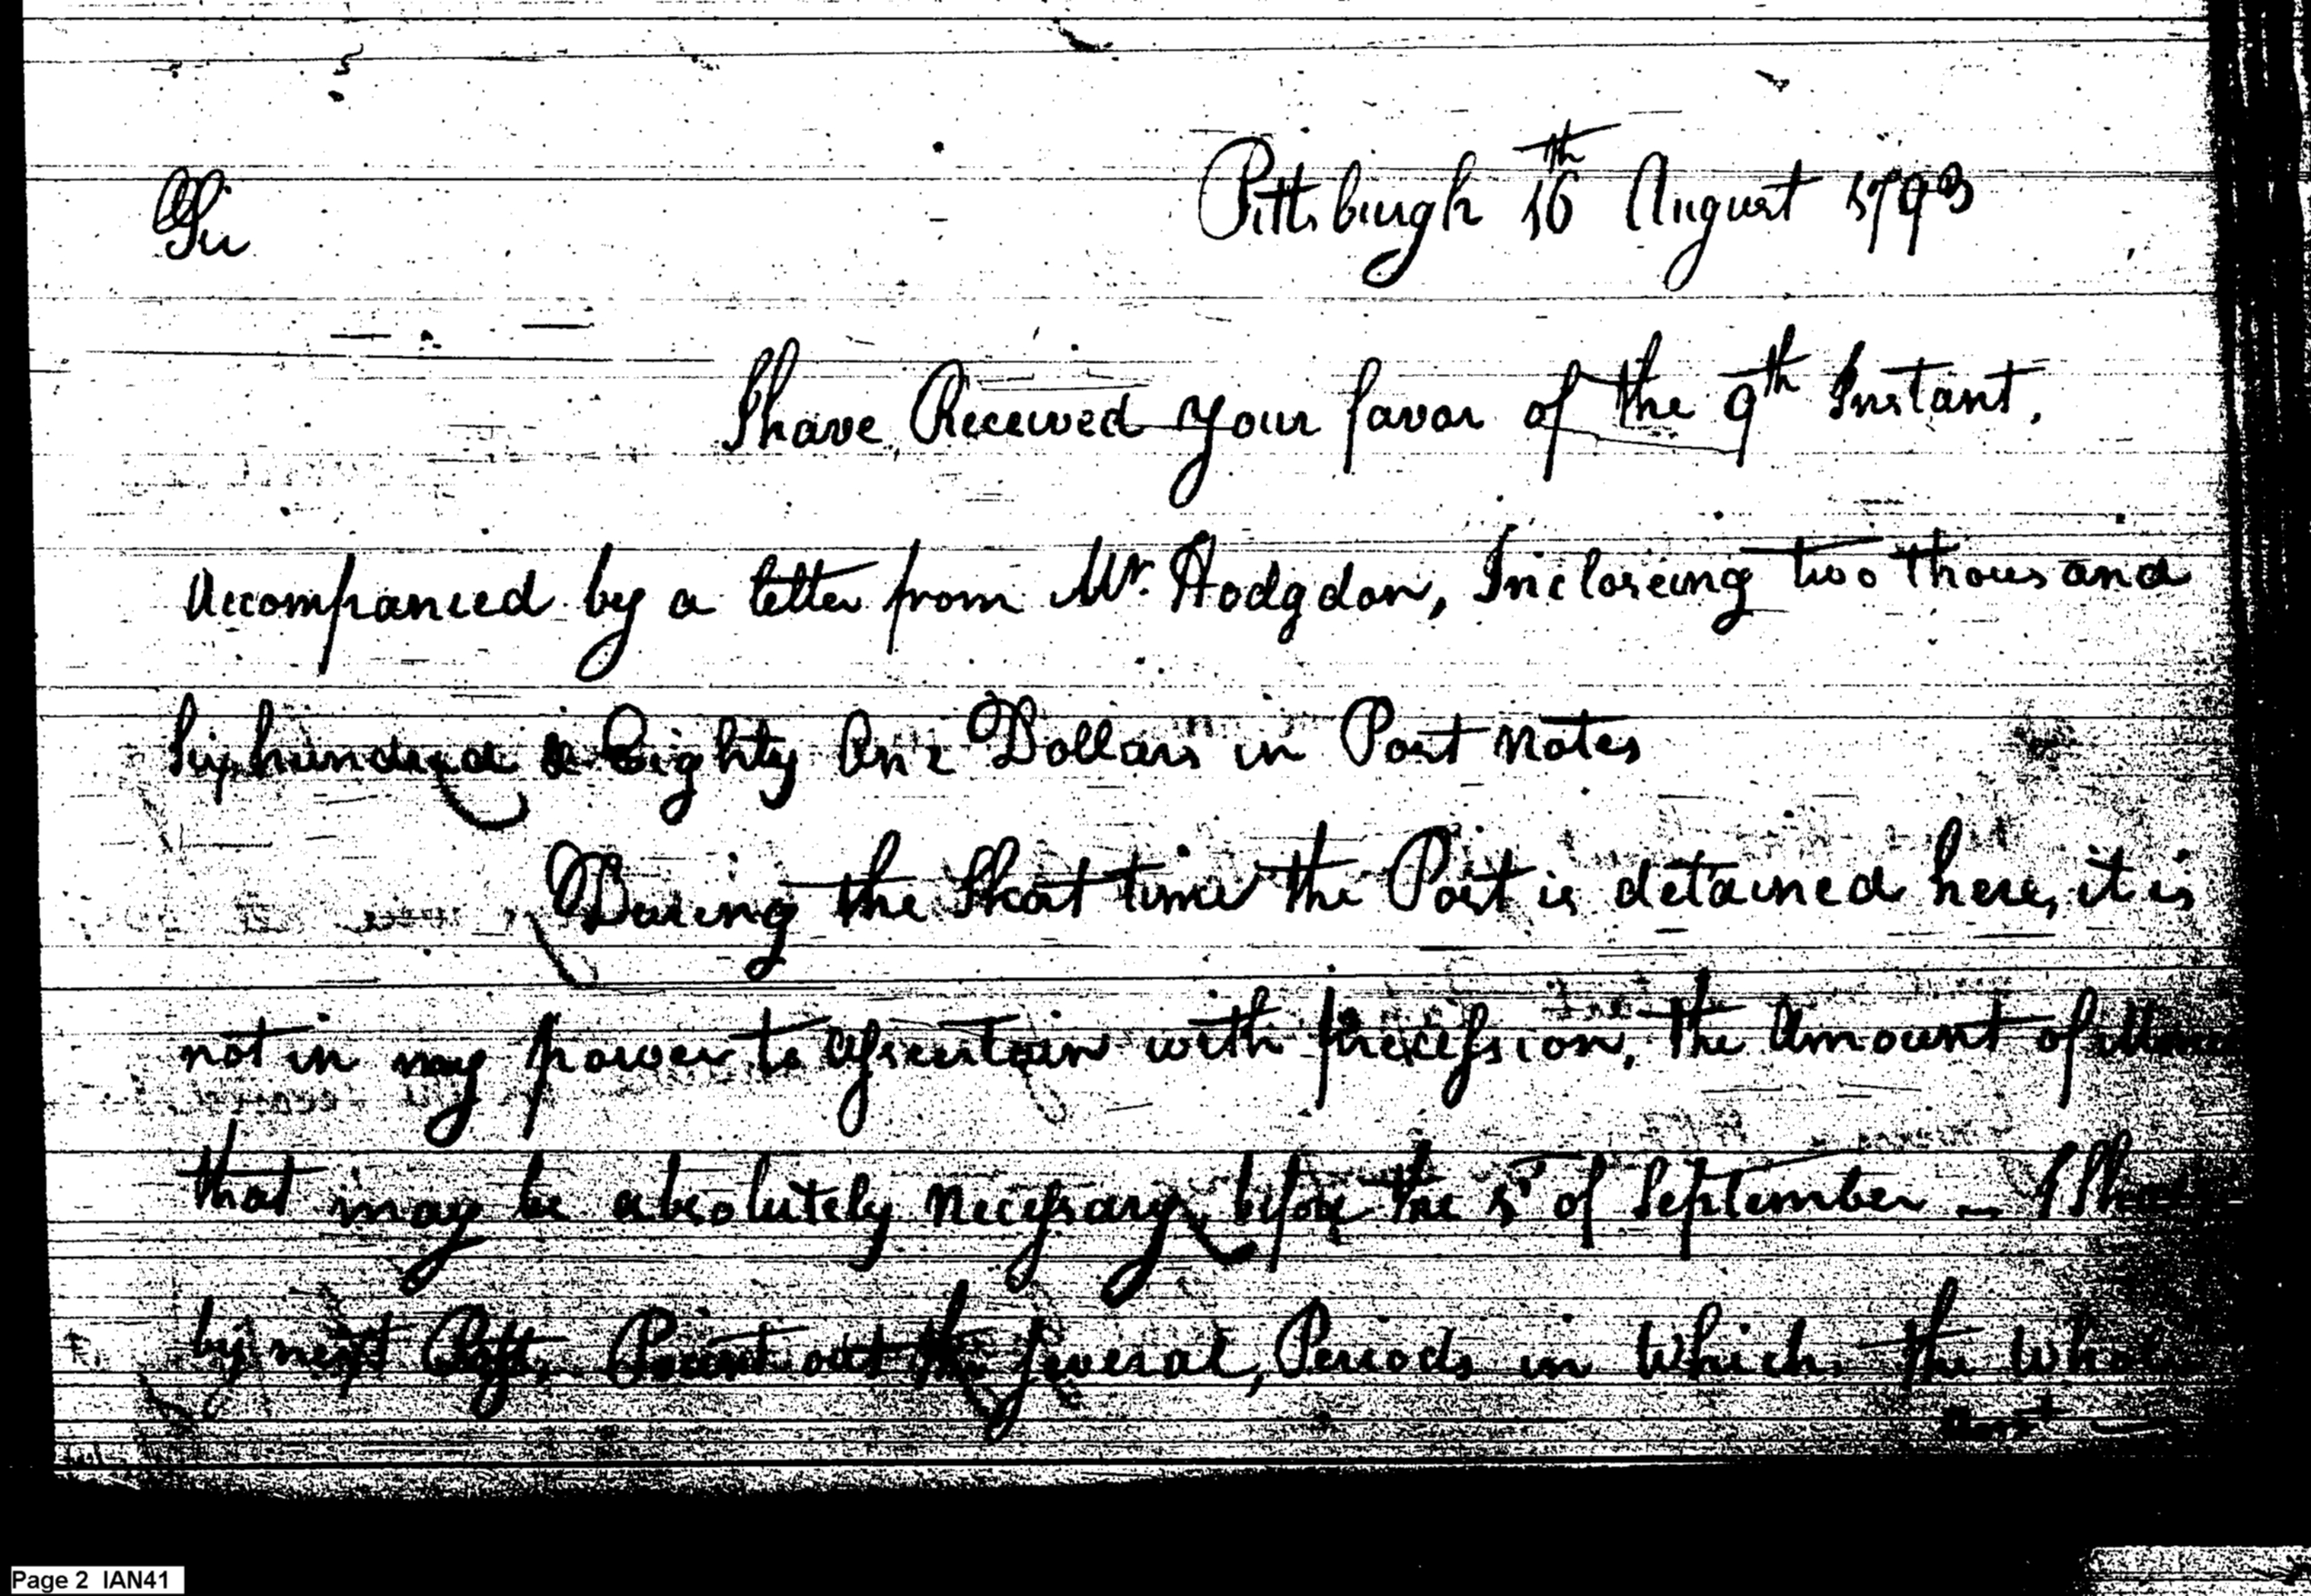 Pittsburgh 16th August 1793
Sir
I have Received your favor of the 9th Instant.
Accompanied by a letter from Mr. Hodgdon, Incloseing two thousand
Six hundred & Eighty One Dollars in Post notes
During the Short time the Post is detained here, it is
not in my power to assertain with precission, the Amount of
that may be absolutely necessary, before the 1st of September – I
by next Post, Point out the several, Periods in Which the Whole
Page 2 IAN41